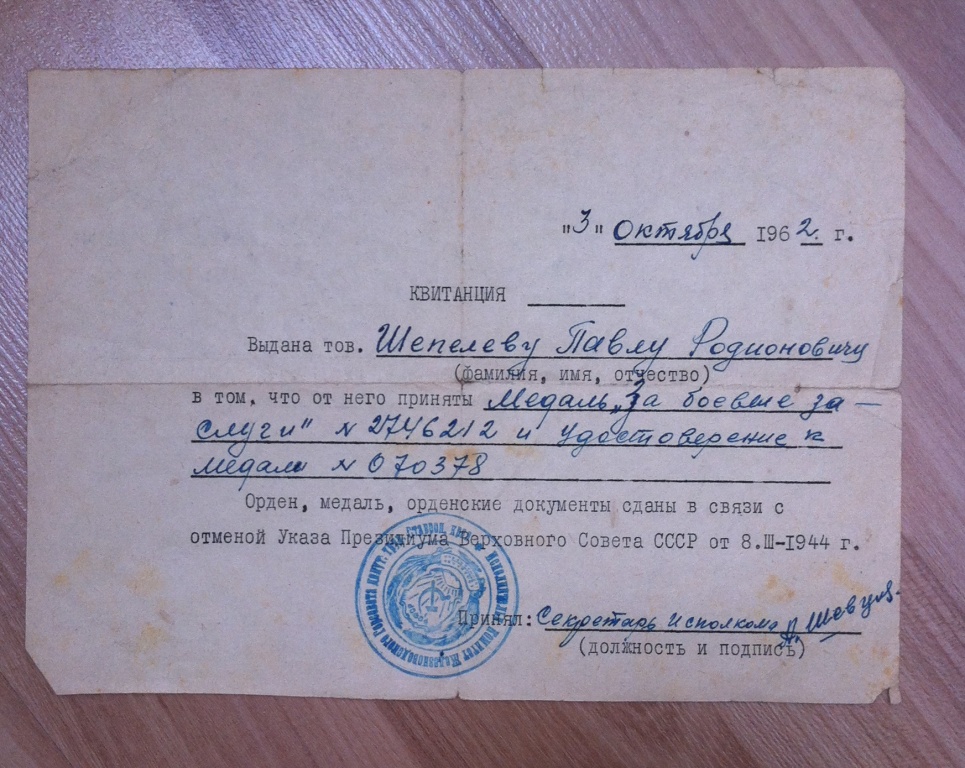 "3" Октября 1962. г.
КВИТАНЦИЯ
Выдана тов. Шепелеву Павлу Родионовичу
(фамилия, имя, отчество)
в том, что от него приняты Медаль „За боевые за-
слуги" N 2746212 и удостоверение к
медали N 070378
Орден, медаль, орденские документы сданы в связи с
отменой Указа Президиума Верховного Совета СССР от 8.Ш-1944 г.
Принял: Секретарь исполкома
(должность и подпись)
Комитет Железноводского Горсовета